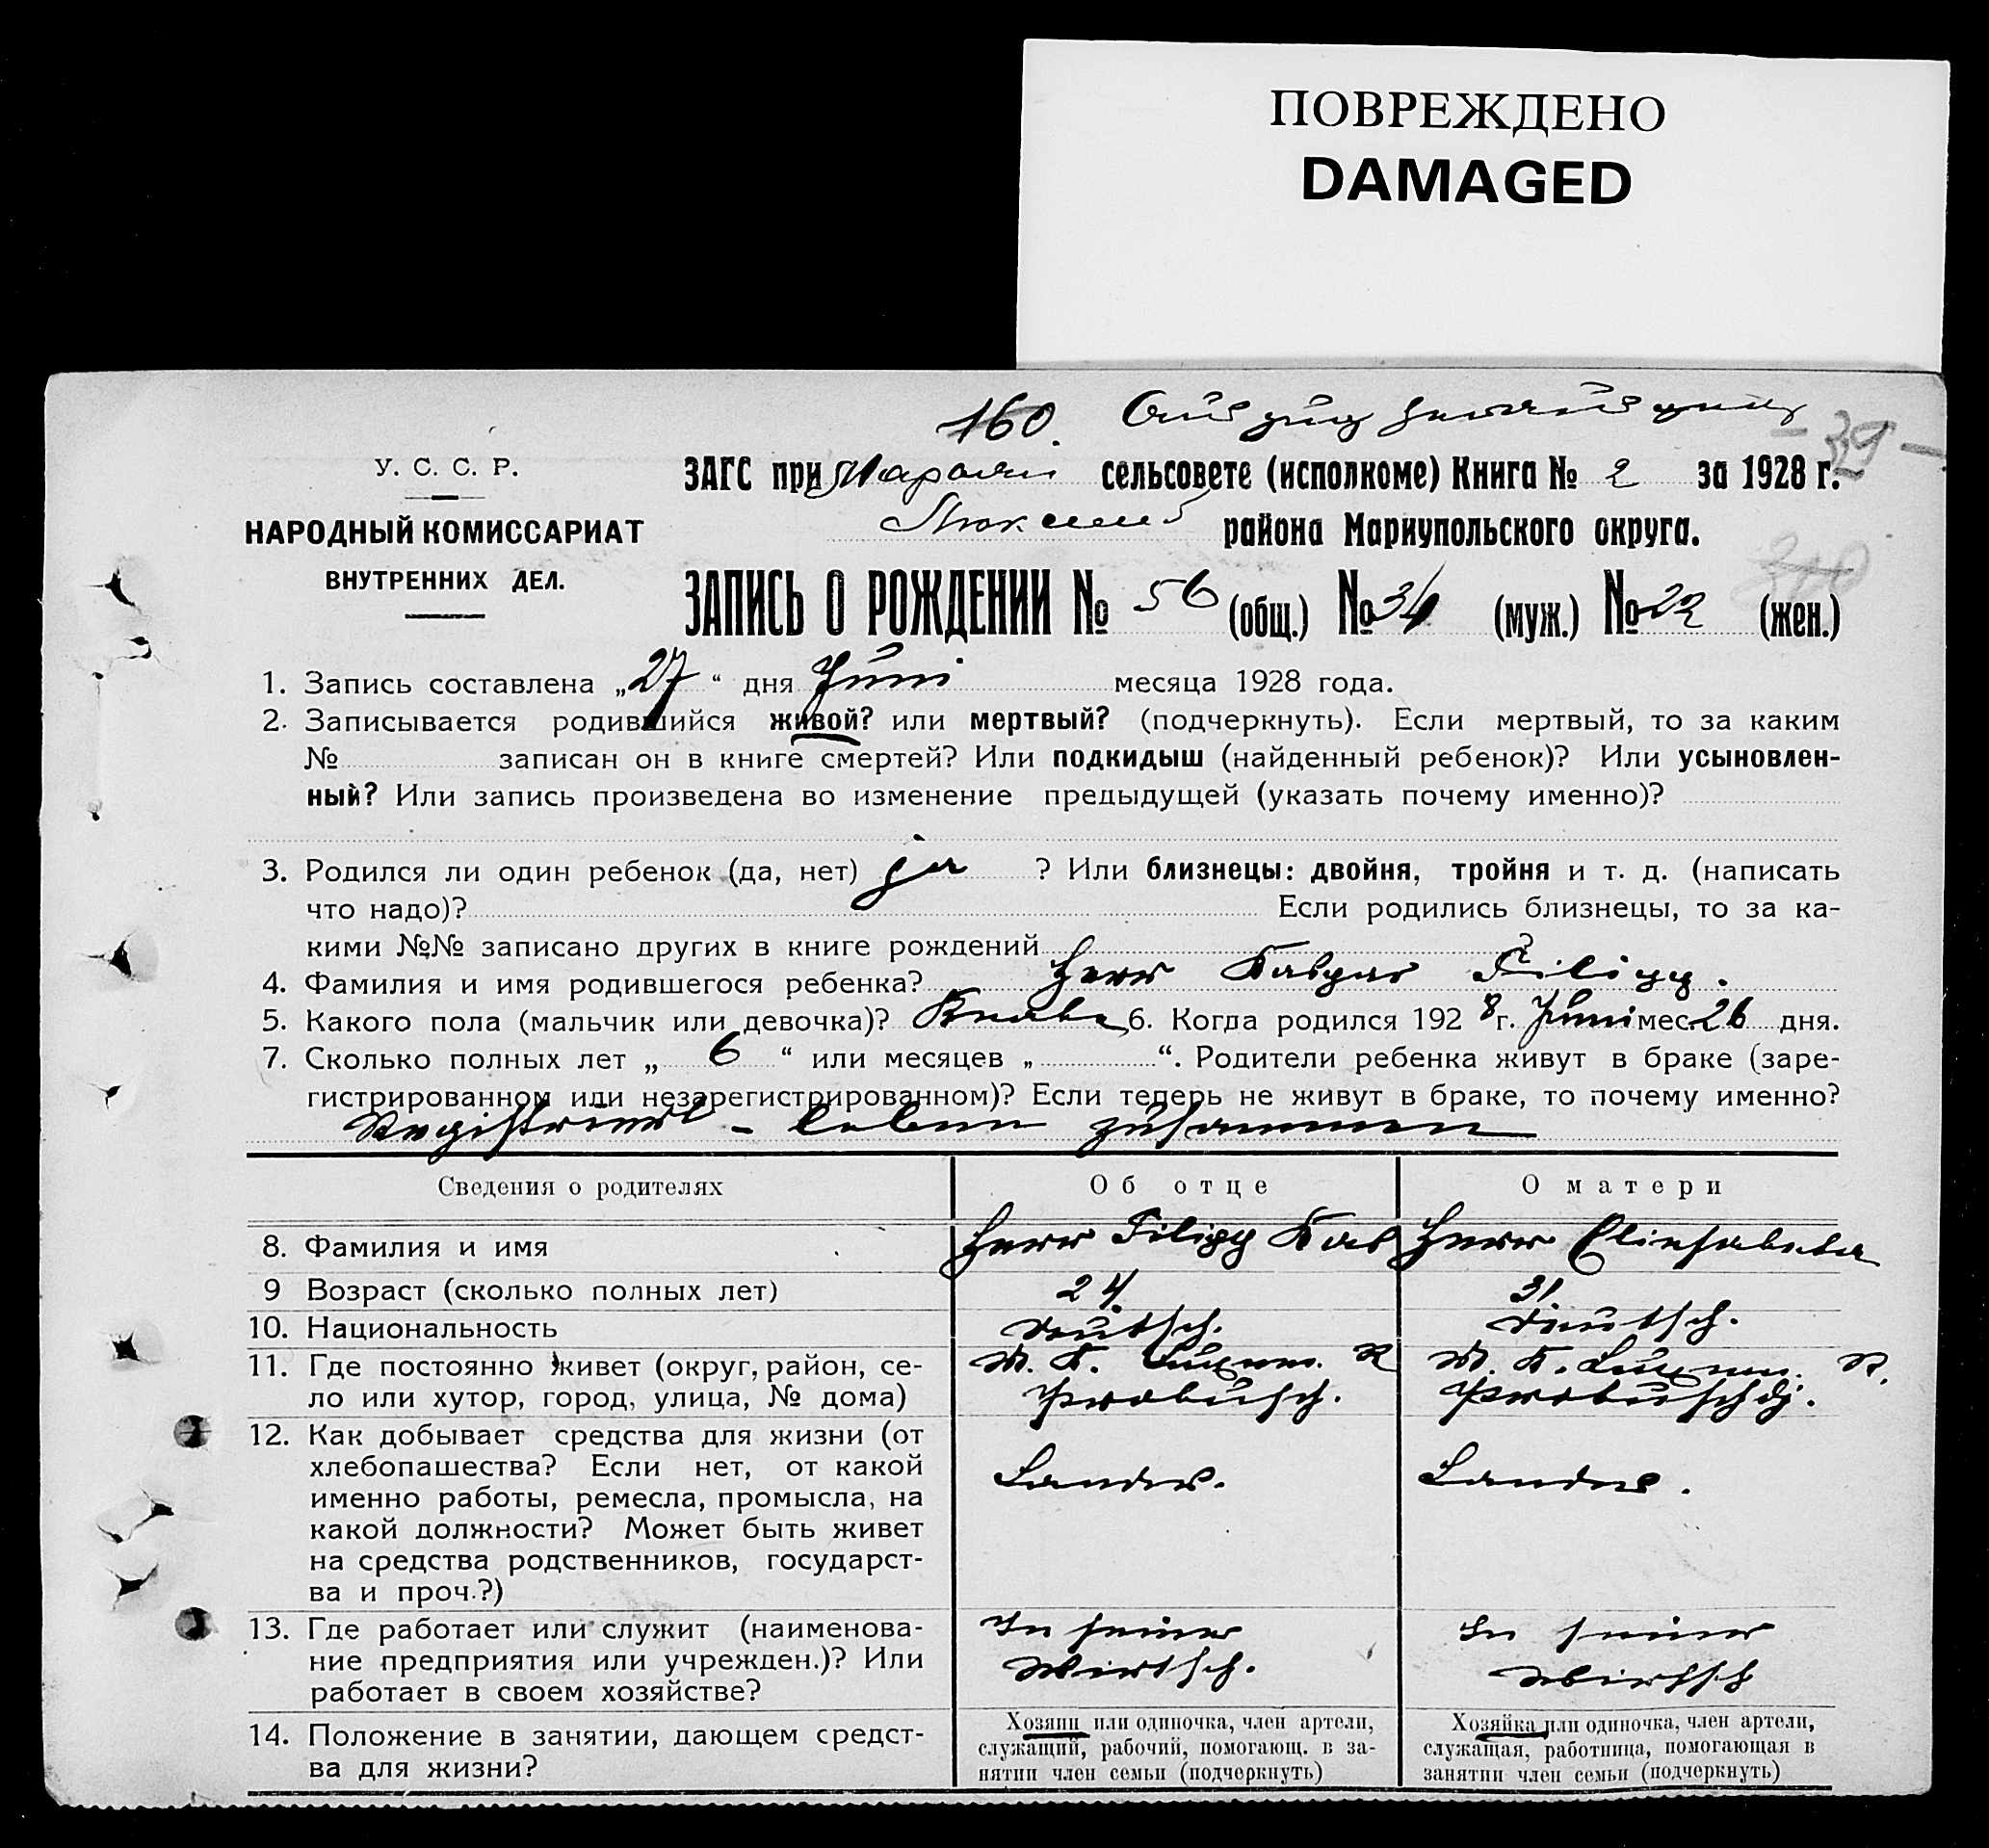 ПОВРЕЖДЕНО
DAMAGED
160. Auszug herausgeg
- 39 -
У. С. С. Р.
ЗАГС при сельсовете (исполкоме) Книга № 2 за 1928 г.
НАРОДНЫЙ КОМИССАРИАТ
района Мариупольского округа.
ВНУТРЕННИХ ДЕЛ.
ЗАПИСЬ О РОЖДЕНИИ № 56 (общ.) № 34 (муж.) № 22 (жен.)
1. Запись составлена „27“ дня Juni месяца 1928 года.
2. Записывается родившийся живой? или мертвый? (подчеркнуть). Если мертвый, то за каким
№ записан он в книге смертей? Или подкидыш (найденный ребенок)? Или усыновлен-
ный? Или запись произведена во изменение предыдущей (указать почему именно)?
3. Родился ли один ребенок (да, нет) ja ? Или близнецы: двойня, тройня и т. д. (написать
что надо)? Если родились близнецы, то за ка-
кими №№ записано других в книге рождений ?
4. Фамилия и имя родившегося ребенка? Herr Kaspar Filipp.
5. Какого пола (мальчик или девочка)? Knabe 6. Когда родился 1928 г. Juni мес. 26 дня.
7. Сколько полных лет „ 6 “ или месяцев „ “. Родители ребенка живут в браке (заре-
гистрированном или незарегистрированном)? Если теперь не живут в браке, то почему именно?
Registriert - leben zusammen
Сведения о родителях Об отце О матери
8. Фамилия и имя Herr Filipp Kas Herr Eliesabeta
9 Возраст (сколько полных лет) 24. 31.
10. Национальность Deutsch. Deutsch.
11. Где постоянно живет (округ, район, се- M. K. Luxem. R M. K. Luxem. R.
ло или хутор, город, улица, № дома)
12. Как добывает средства для жизни (от
хлебопашества? Если нет, от какой
именно работы, ремесла, промысла, на
какой должности? Может быть живет
на средства родственников, государст-
ва и проч.?)
Landw. Landw.
13. Где работает или служит (наименова- In seiner In seiner
ние предприятия или учрежден.)? Или Wirtsch. Wirtsch
работает в своем хозяйстве?
14. Положение в занятии, дающем средст-
ва для жизни?
Хозяин или одиночка, член артели,
служащий, рабочий, помогающ. в за-
нятии член семьи (подчеркнуть)
Хозяйка или одиночка, член артели,
служащая, работница, помогающая в
занятии член семьи (подчеркнуть)